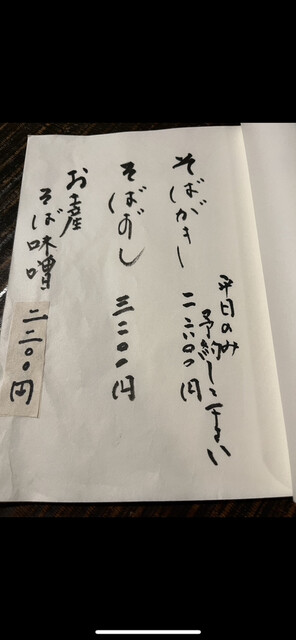 平日のみ
予約して下さい
そばがき 二六〇〇円
そばずし 三二〇〇円
お土産
そば味噌 二二〇〇円